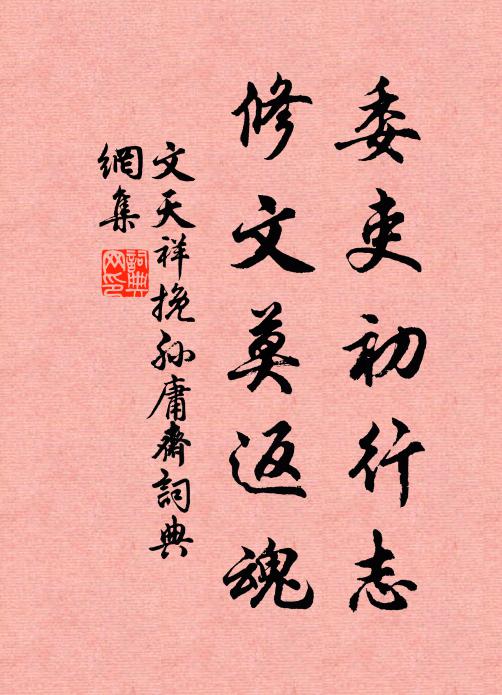 委吏初行志
修文莫返魂
文天祥挽孙庸齋詞典
網集
詞典
网印